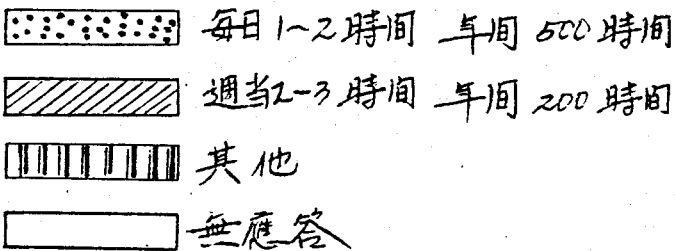 毎日 1~2 時間 年间 500 時間
週当 2-3 時間 年间 200 時間
其他
無應答